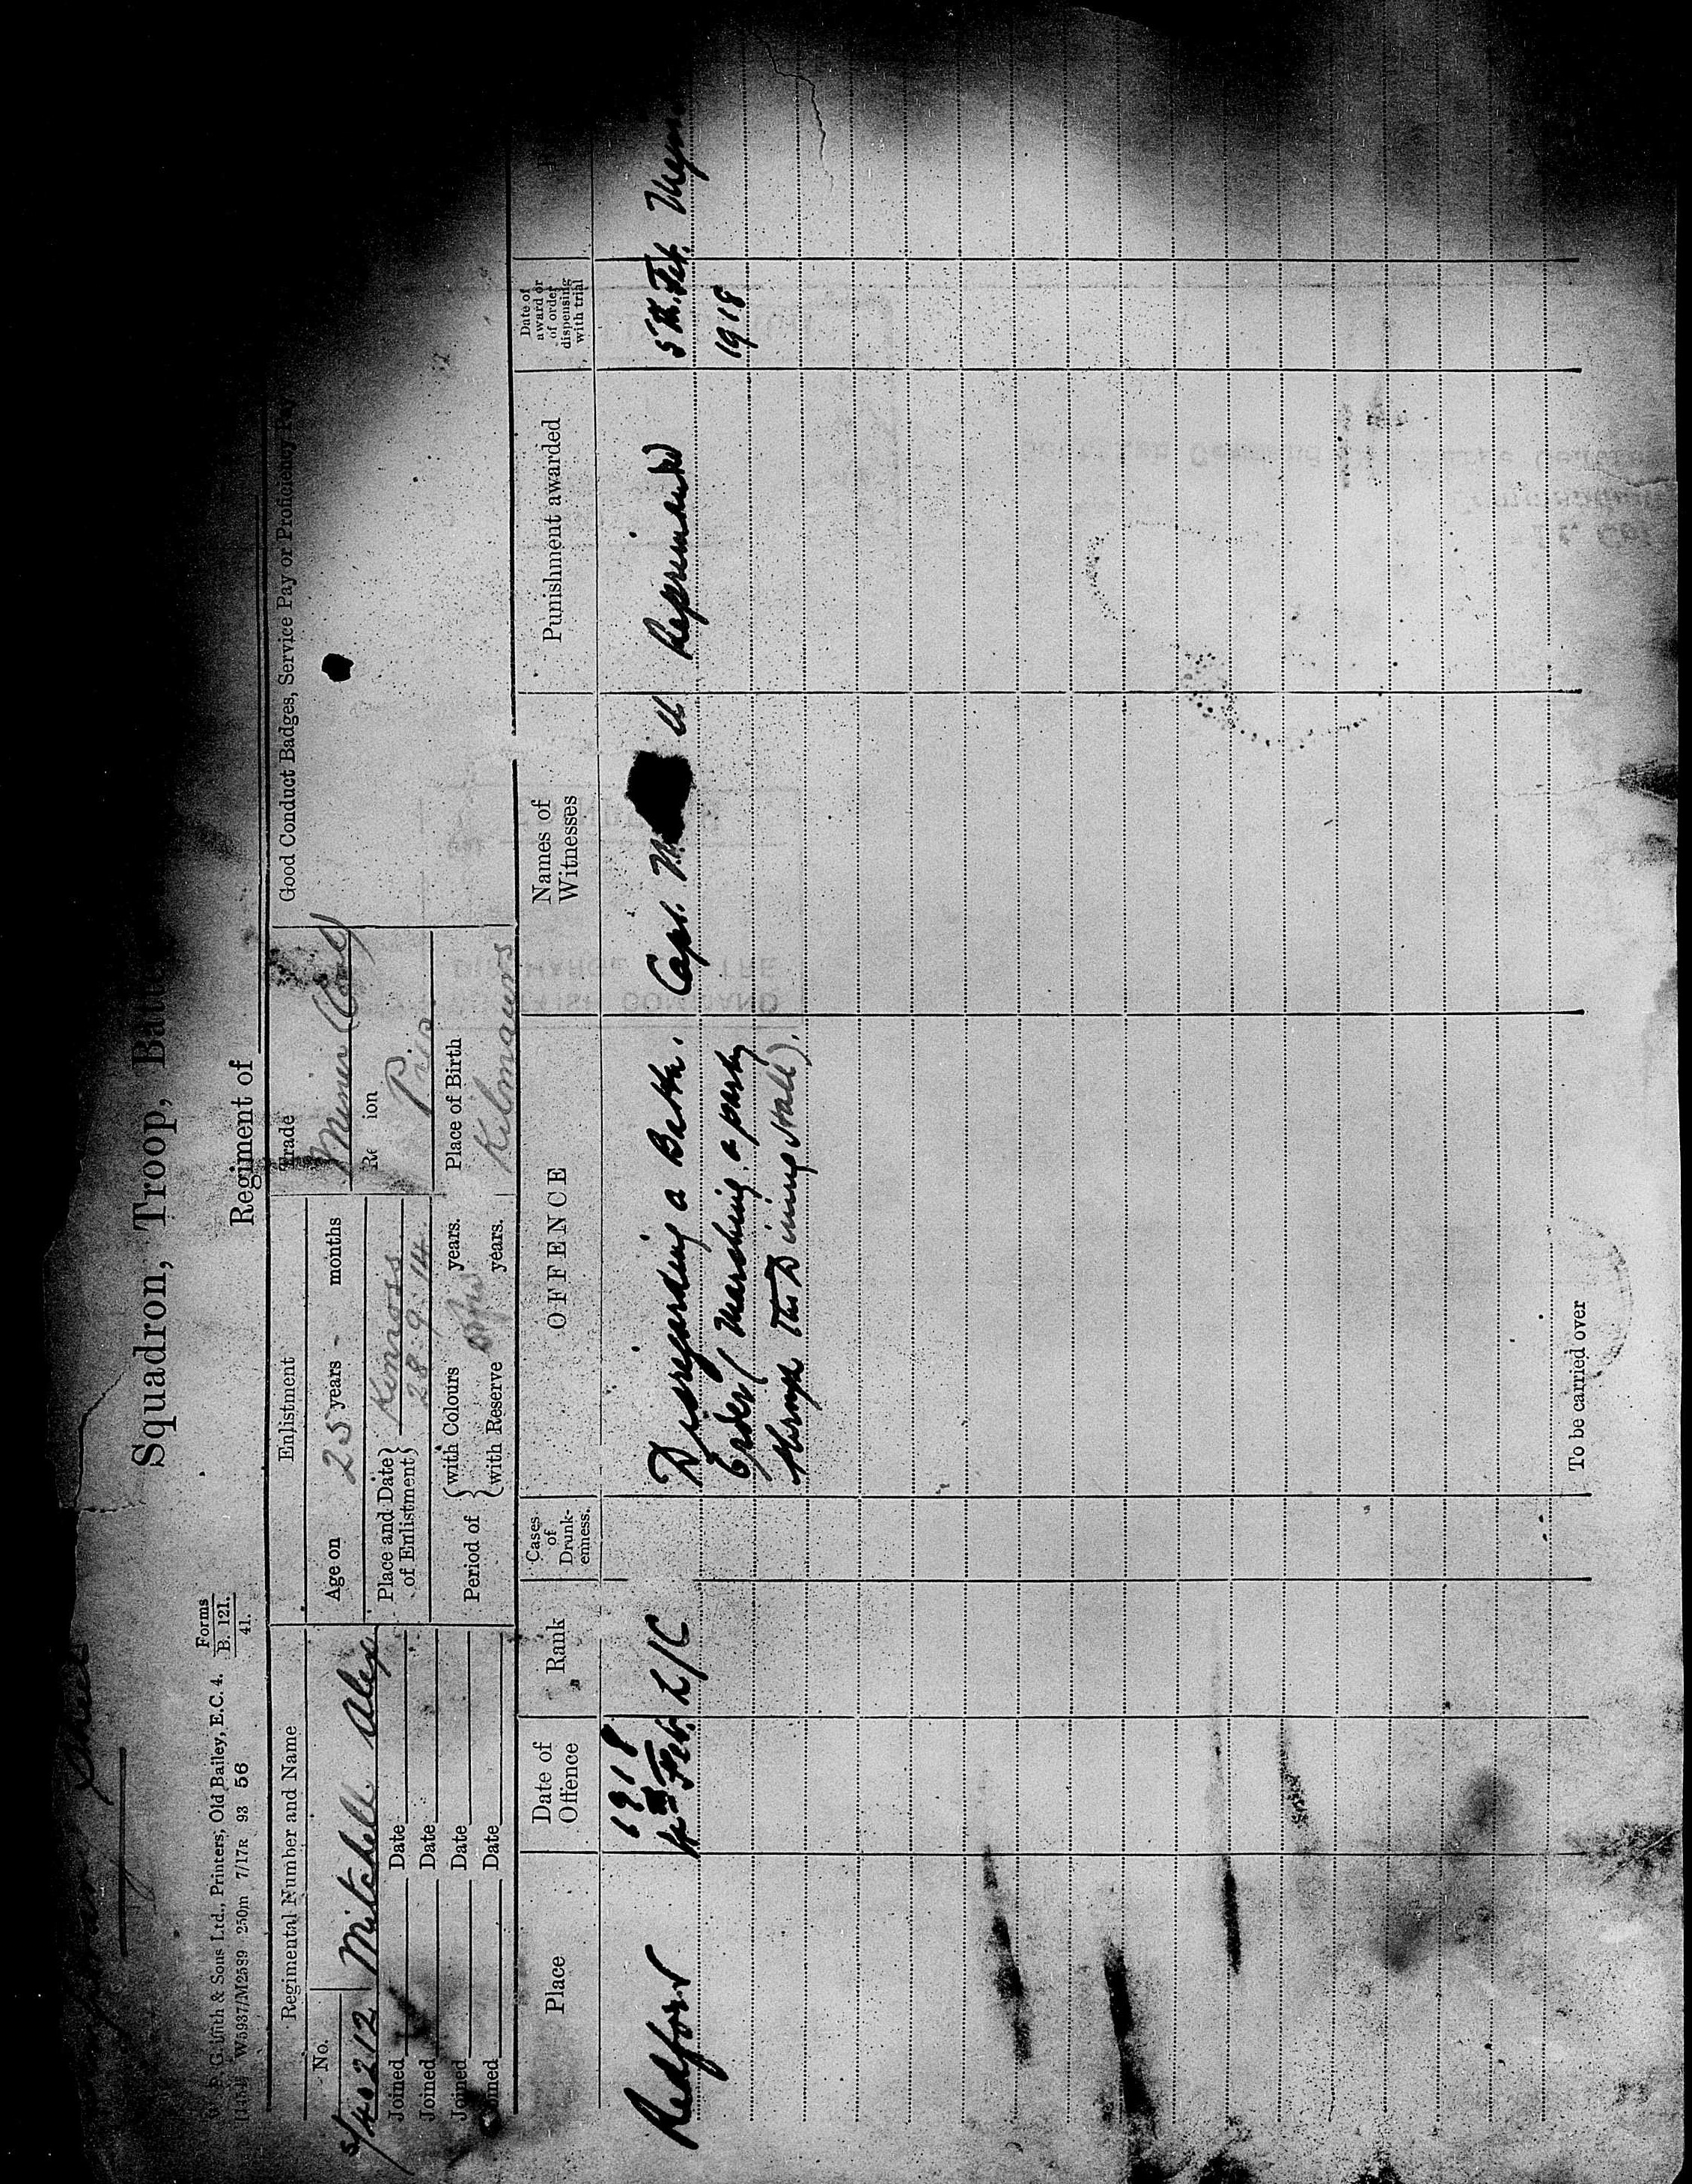 Squadron, Troop, Batt
Regiment of
G. iffith & Sons Ltd., Printers, Old Bailey, E.C. 4.
W5937/M2599 250m 7/17R 93 56
Forms
B. 121.
41.
Regimental Number and Name
No.
Mitchell Alex
Joined Date
Joined Date
Joined Date
Joined Date
Enlistment
Age on 25 years - months
Place and Date of Enlistment
Kinross
28.9.14
Period of
with Colours years.
with Reserve years.
Trade
Miner (Coal)
Re ion
Place of Birth
Kilmaurs
Good Conduct Badges, Service Pay or Proficiency Pay
Place
Date of Offence
Rank
Cases of Drunk-enness.
OFFENCE
Names of Witnesses
Punishment awarded
Date of award or of order dispensing with trial
Redford
1918
4th Feb.
L/C
Disregarding a Batn.
Order (Marching a party
through the Dining Hall).
Capt. M ll
Reprimanded
5th. Feb.
1918
To be carried over